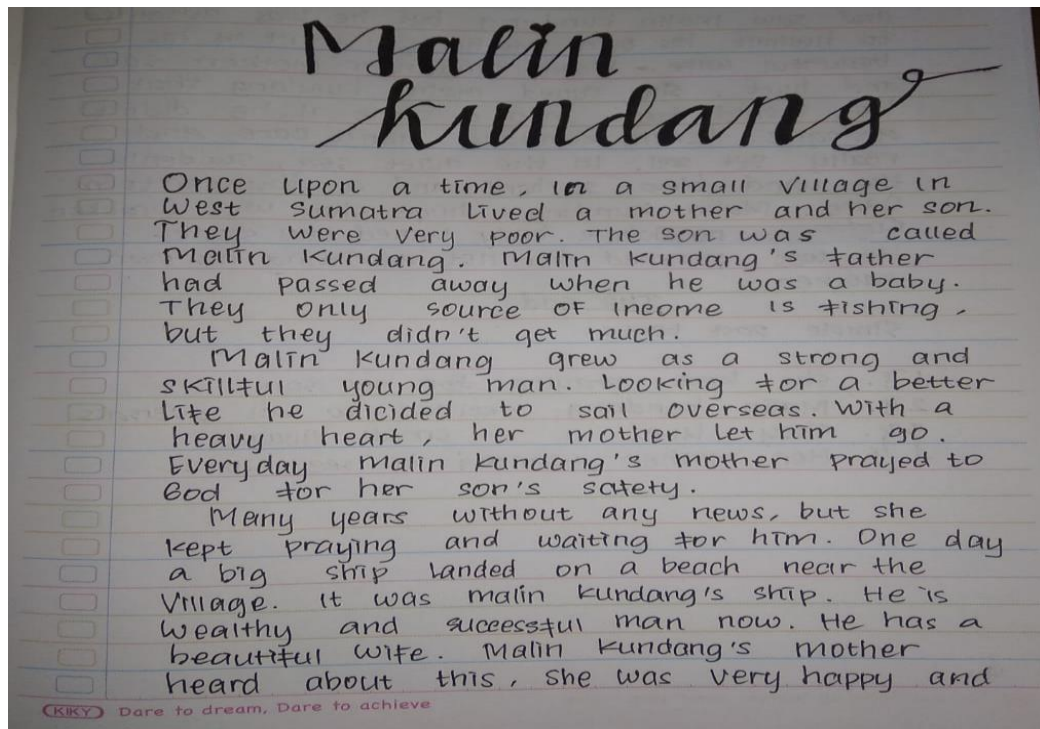 Malin
kundang
Once upon a time, in a small village in
West Sumatra lived a mother and her son.
They were very poor. The son was called
Malin Kundang. Malin kundang's father
had passed away when he was a baby.
They only source of income is fishing,
but they didn't get much.
Malin kundang grew as a strong and
skillful young man. Looking for a better
Life he dicided to sail overseas. With a
heavy heart, her mother let him go.
Everyday Malin kundang's mother prayed to
God for her son's safety.
Many years without any news, but she
kept praying and waiting for him. One day
a big ship landed on a beach near the
village. It was malin kundang's ship. He is
wealthy and successful man now. He has a
beautiful wife. Malin kundang's mother
heard about this, she was very happy and
KIKY Dare to dream, Dare to achieve